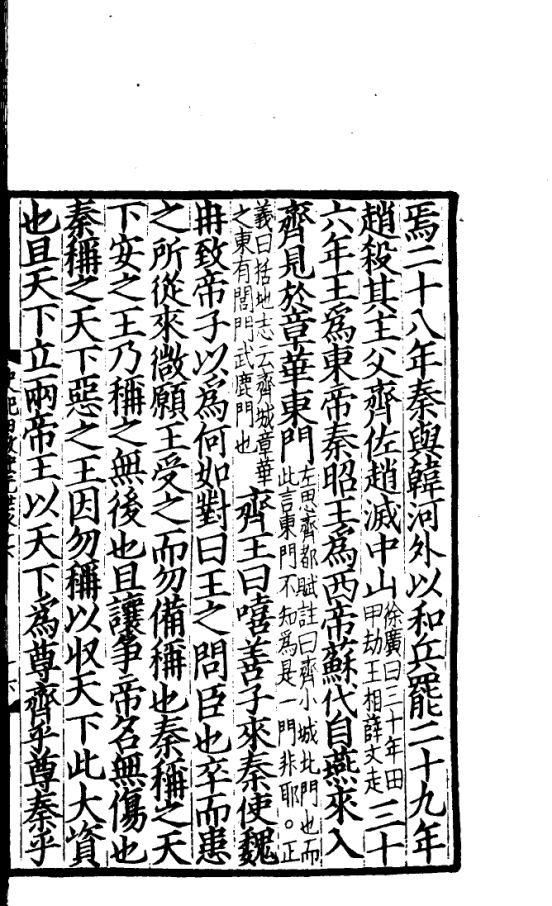 焉二十八年秦與韓河外以和兵罷二十九年
趙殺其主父齊佐趙滅中山徐廣曰三十年田甲劫王相薛文走三十
六年王爲東帝秦昭王爲西帝蘇代自燕來入
齊見於章華東門左思齊都賦註曰齊小城北門也而此言東門不知爲是一門非耶。正
義曰括地志云齊城章華之東有閭門武鹿門也齊王曰嘻善子來秦使魏
冉致帝子以爲何如對曰王之問臣也卒而患
之所從來微願王受之而勿備稱也秦稱之天
下安之王乃稱之無後也且讓爭帝名無傷也
秦稱之天下惡之王因勿稱以收天下此大資
也且天下立兩帝王以天下爲尊齊乎尊秦乎